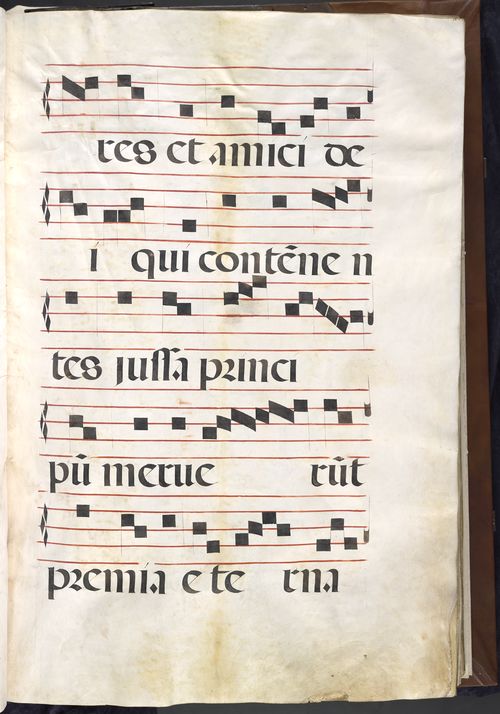 res et amici de
i qui contēne n
tes jussa princi
pū merue rūt
premia ete rna